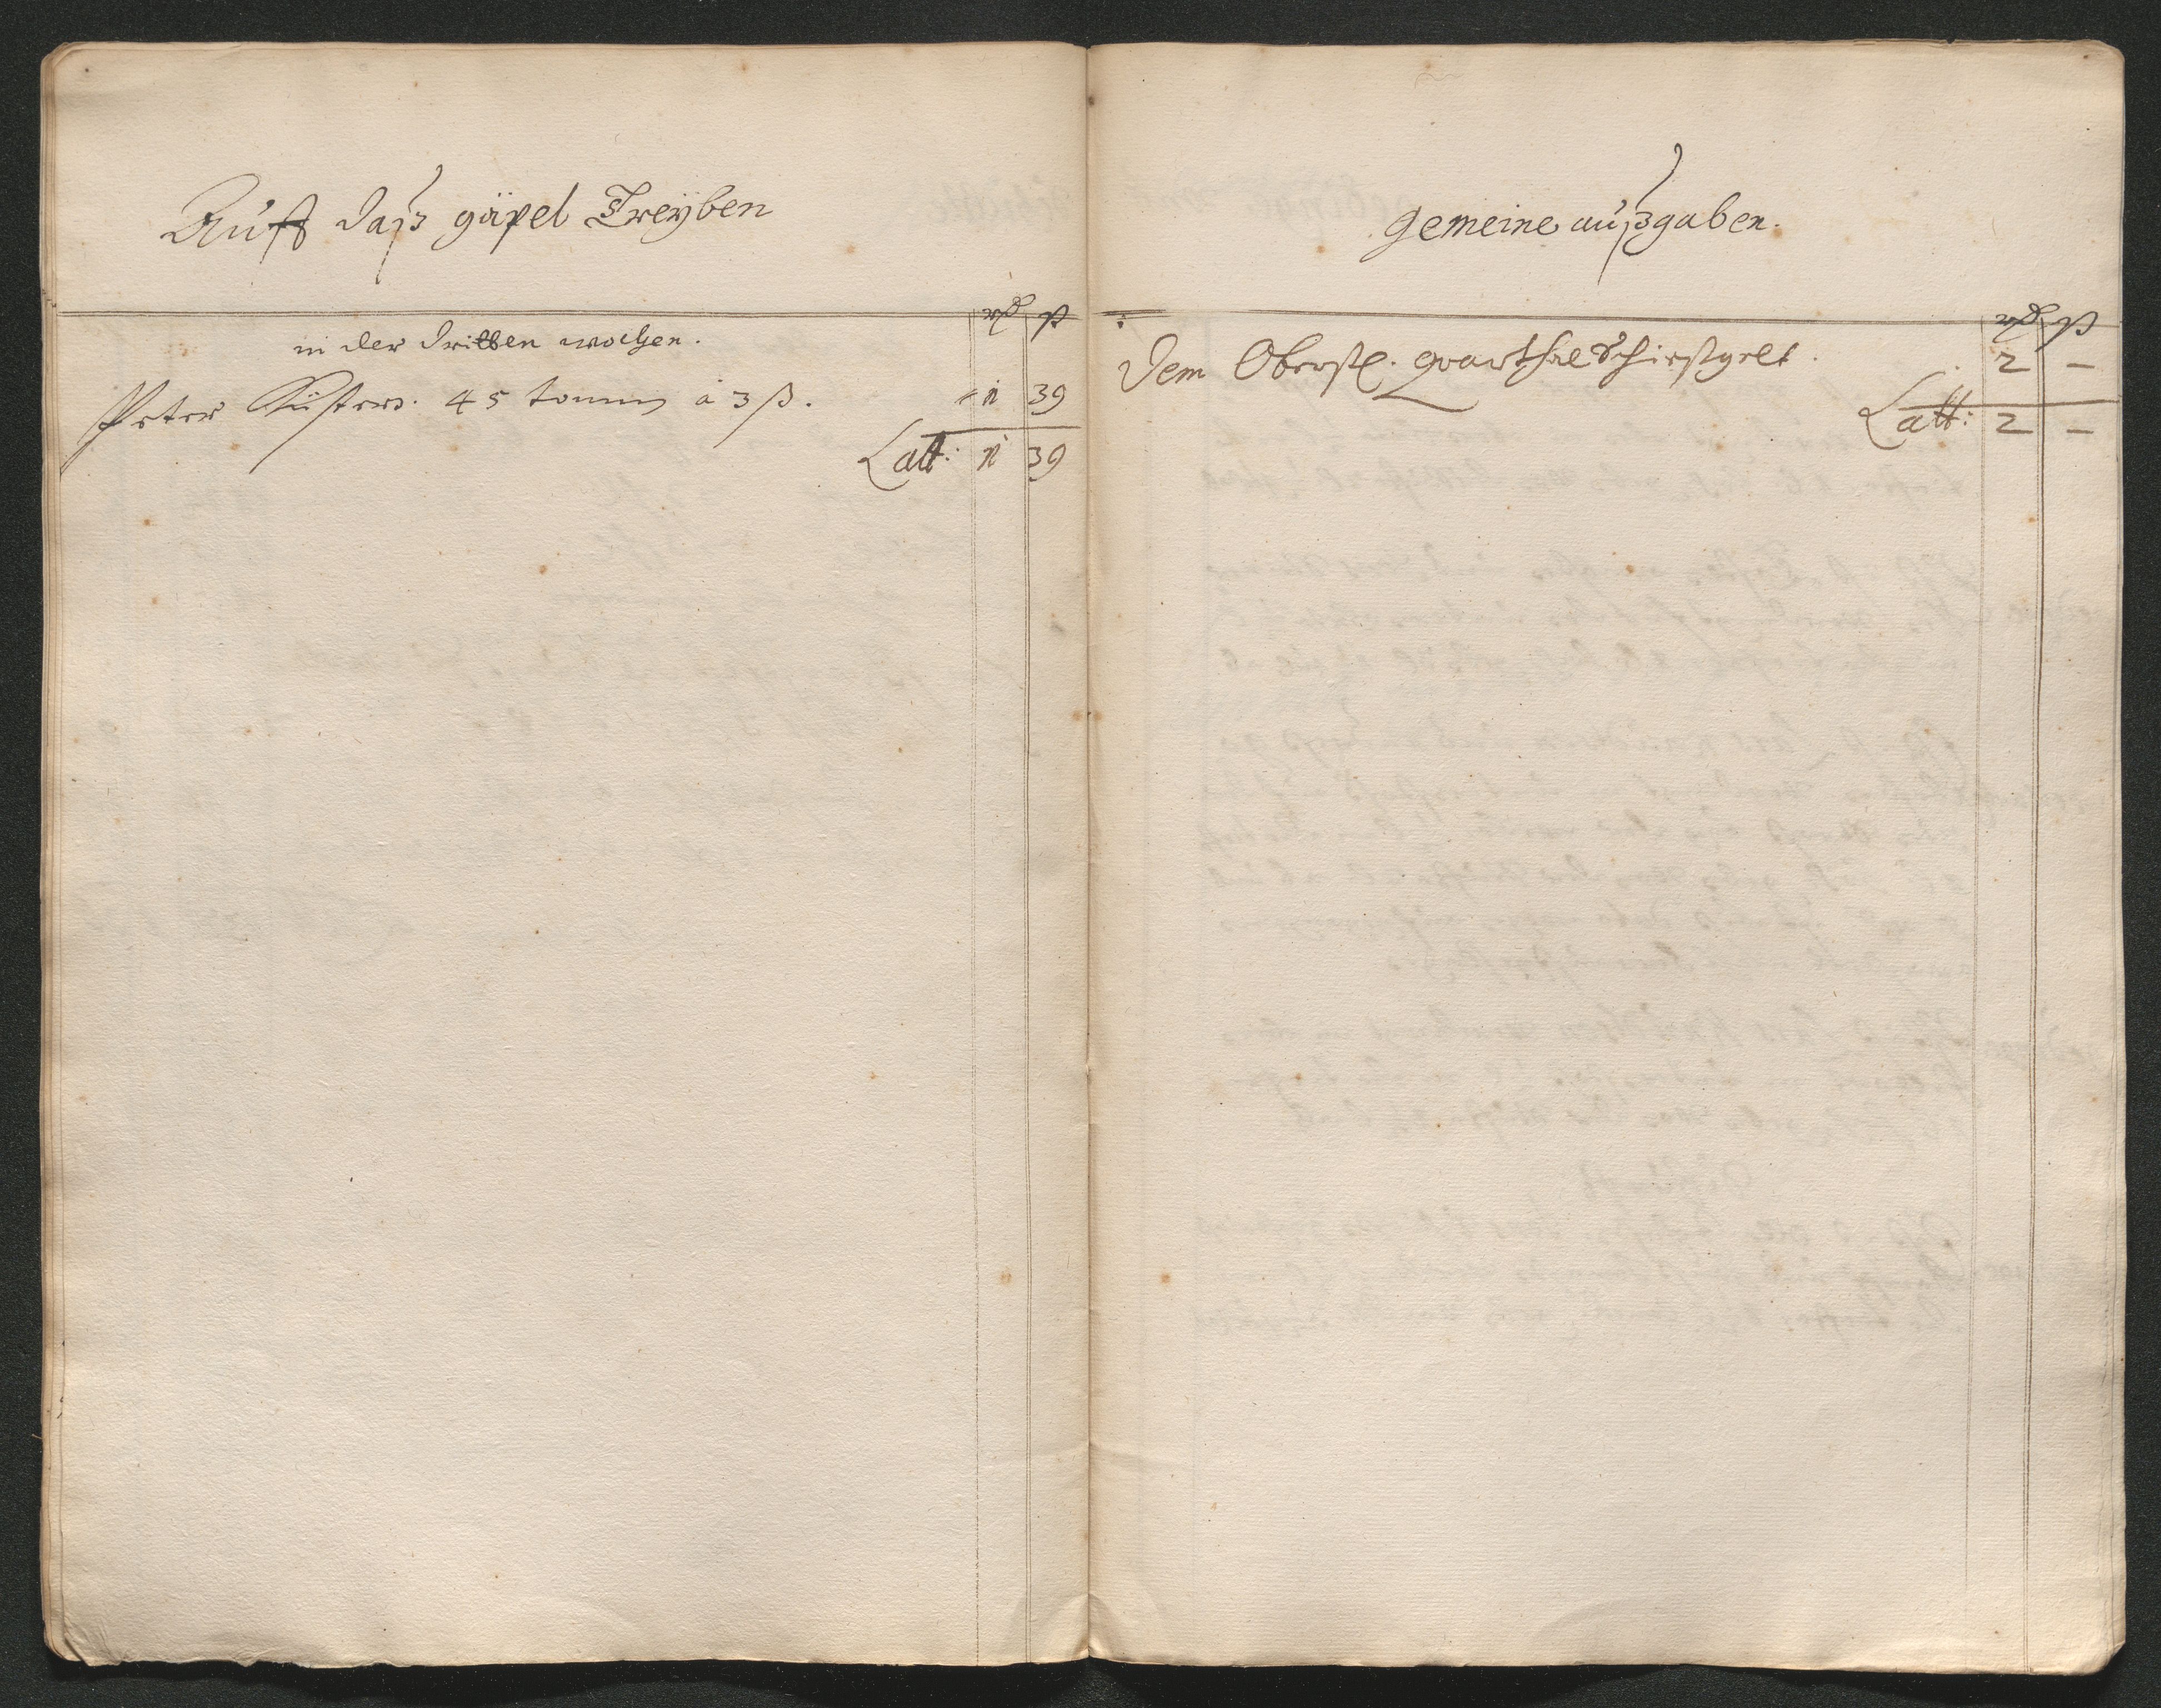 Auff daß göpel Treyben
rd ß
in der dritten wochen.
Peter Küsters. 45 tonnen a 3 ß. 1 39
Latt: 1 39
gemeine außgaben.
rd ß
Dem Oberst. quarthal Schirstgelt. 2 –
Latt: 2 –